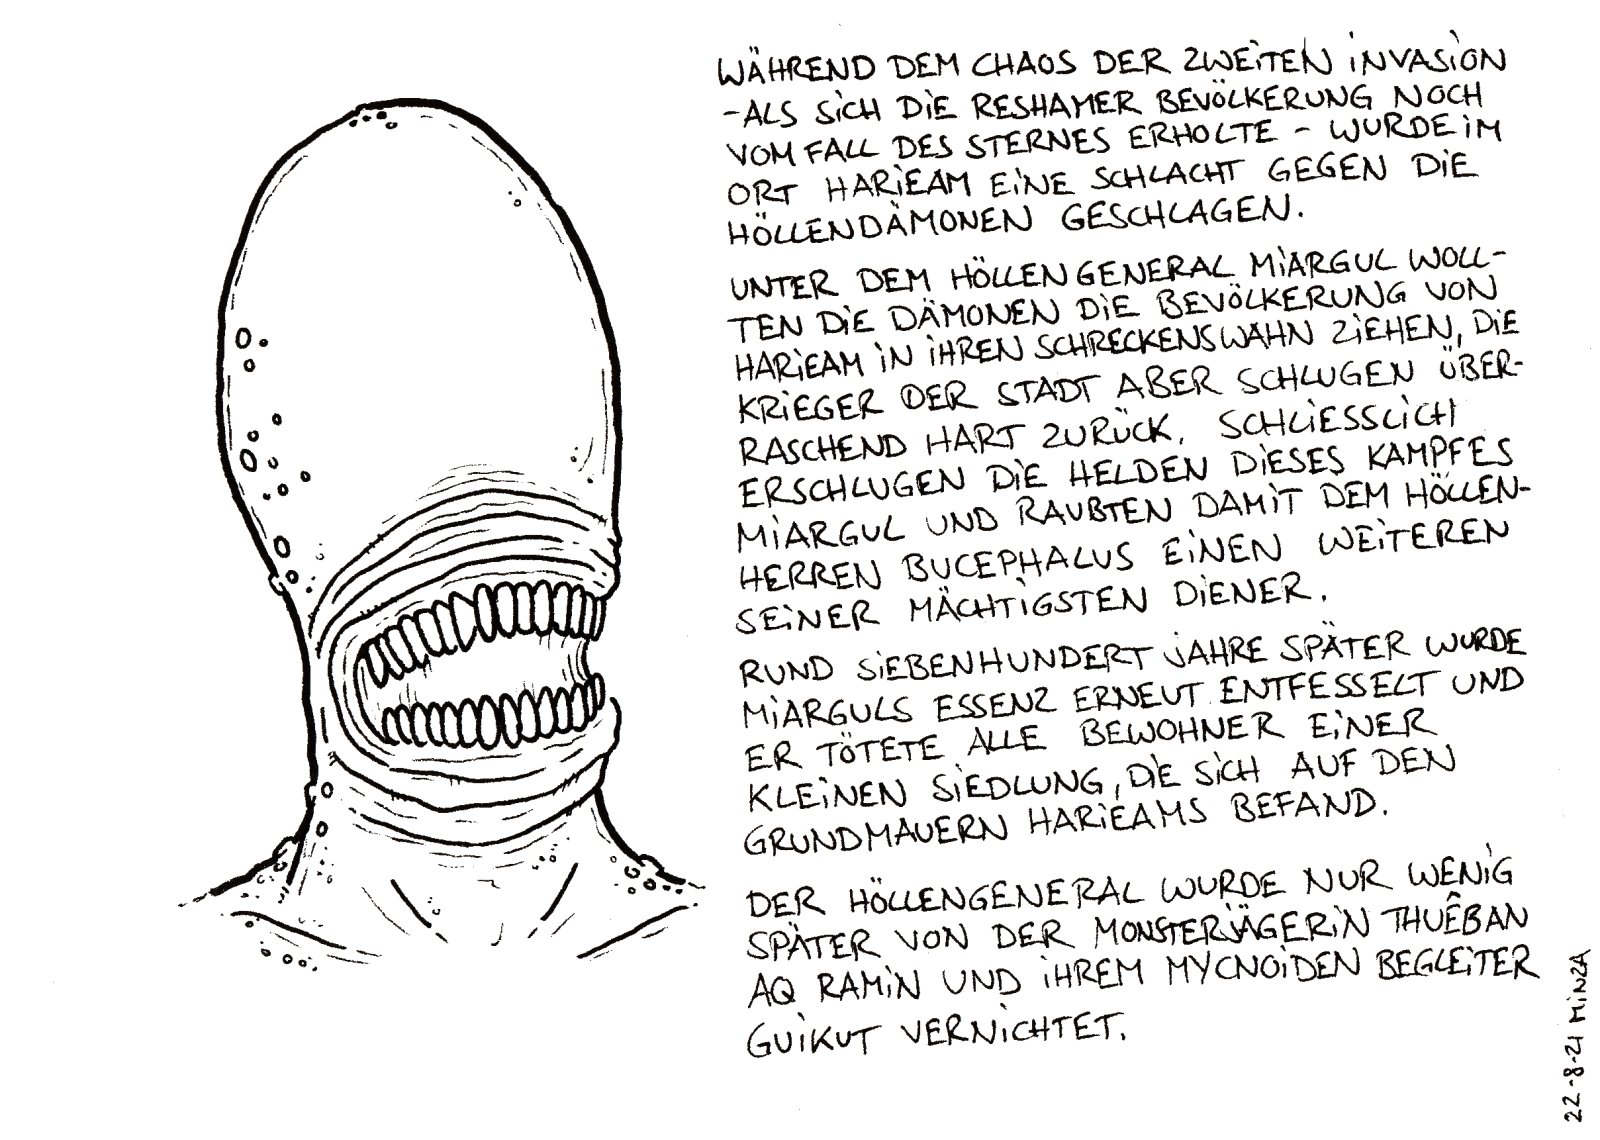 WÄHREND DEM CHAOS DER ZWEITEN INVASION
- ALS SICH DIE RESHAMER BEVÖLKERUNG NOCH
VOM FALL DES STERNES ERHOLTE - WURDE IM
ORT HARIEAM EINE SCHLACHT GEGEN DIE
HÖLLENDÄMONEN GESCHLAGEN.
UNTER DEM HÖLLENGENERAL MIARGUL WOLL-
TEN DIE DÄMONEN DIE BEVÖLKERUNG VON
HARIEAM IN IHREN SCHRECKENSWAHN ZIEHEN, DIE
KRIEGER DER STADT ABER SCHLUGEN ÜBER-
RASCHEND HART ZURÜCK. SCHLIESSLICH
ERSCHLUGEN DIE HELDEN DIESES KAMPFES
MIARGUL UND RAUBTEN DAMIT DEM HÖLLEN-
HERREN BUCEPHALUS EINEN WEITEREN
SEINER MÄCHTIGSTEN DIENER.
RUND SIEBENHUNDERT JAHRE SPÄTER WURDE
MIARGULS ESSENZ ERNEUT ENTFESSELT UND
ER TÖTETE ALLE BEWOHNER EINER
KLEINEN SIEDLUNG, DIE SICH AUF DEN
GRUNDMAUERN HARIEAMS BEFAND.
DER HÖLLENGENERAL WURDE NUR WENIG
SPÄTER VON DER MONSTERJÄGERIN THUÊBAN
AQ RAMIN UND IHREM MYCNOIDEN BEGLEITER
GUIKUT VERNICHTET.
22-8-21 MINZA